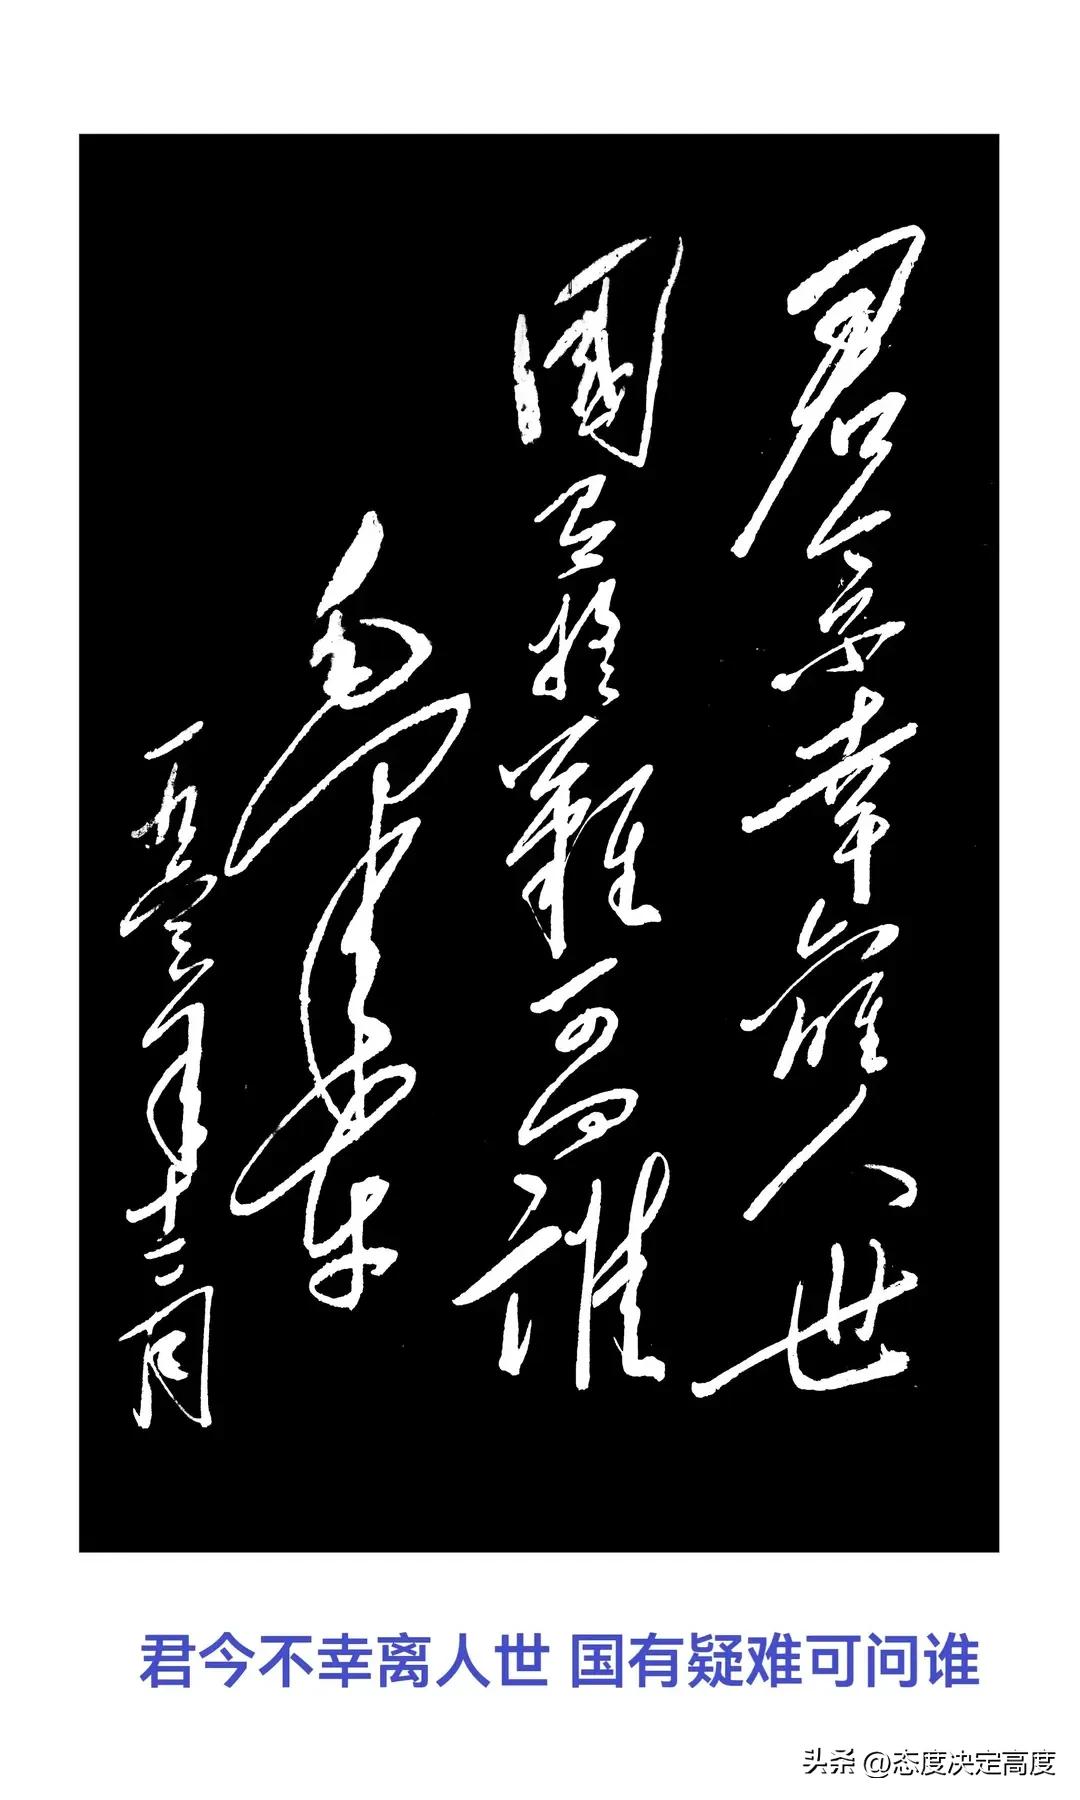 君今不幸離人世
國有疑難可問誰
毛澤東
一九六三年十二月
君今不幸离人世 国有疑难可问谁
头条 @态度决定高度